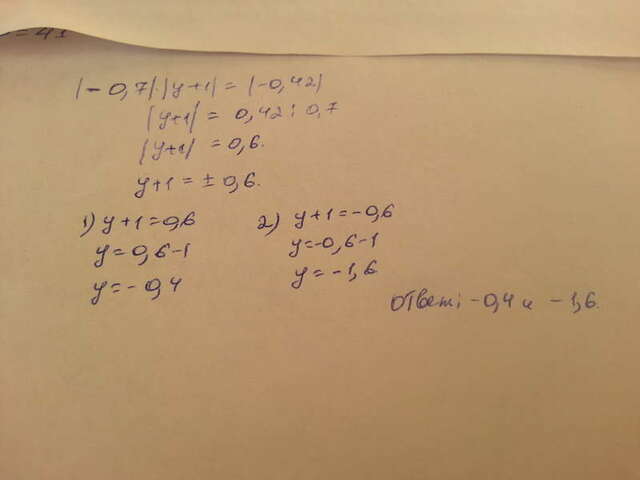 |-0,7|·|y+1| = |-0,42|
|y+1| = 0,42 : 0,7
|y+1| = 0,6.
y+1 = ± 0,6.
1) y+1=0,6
y=0,6-1
y=-0,4
2) y+1=-0,6
y=-0,6-1
y=-1,6
Ответ: -0,4 и -1,6.